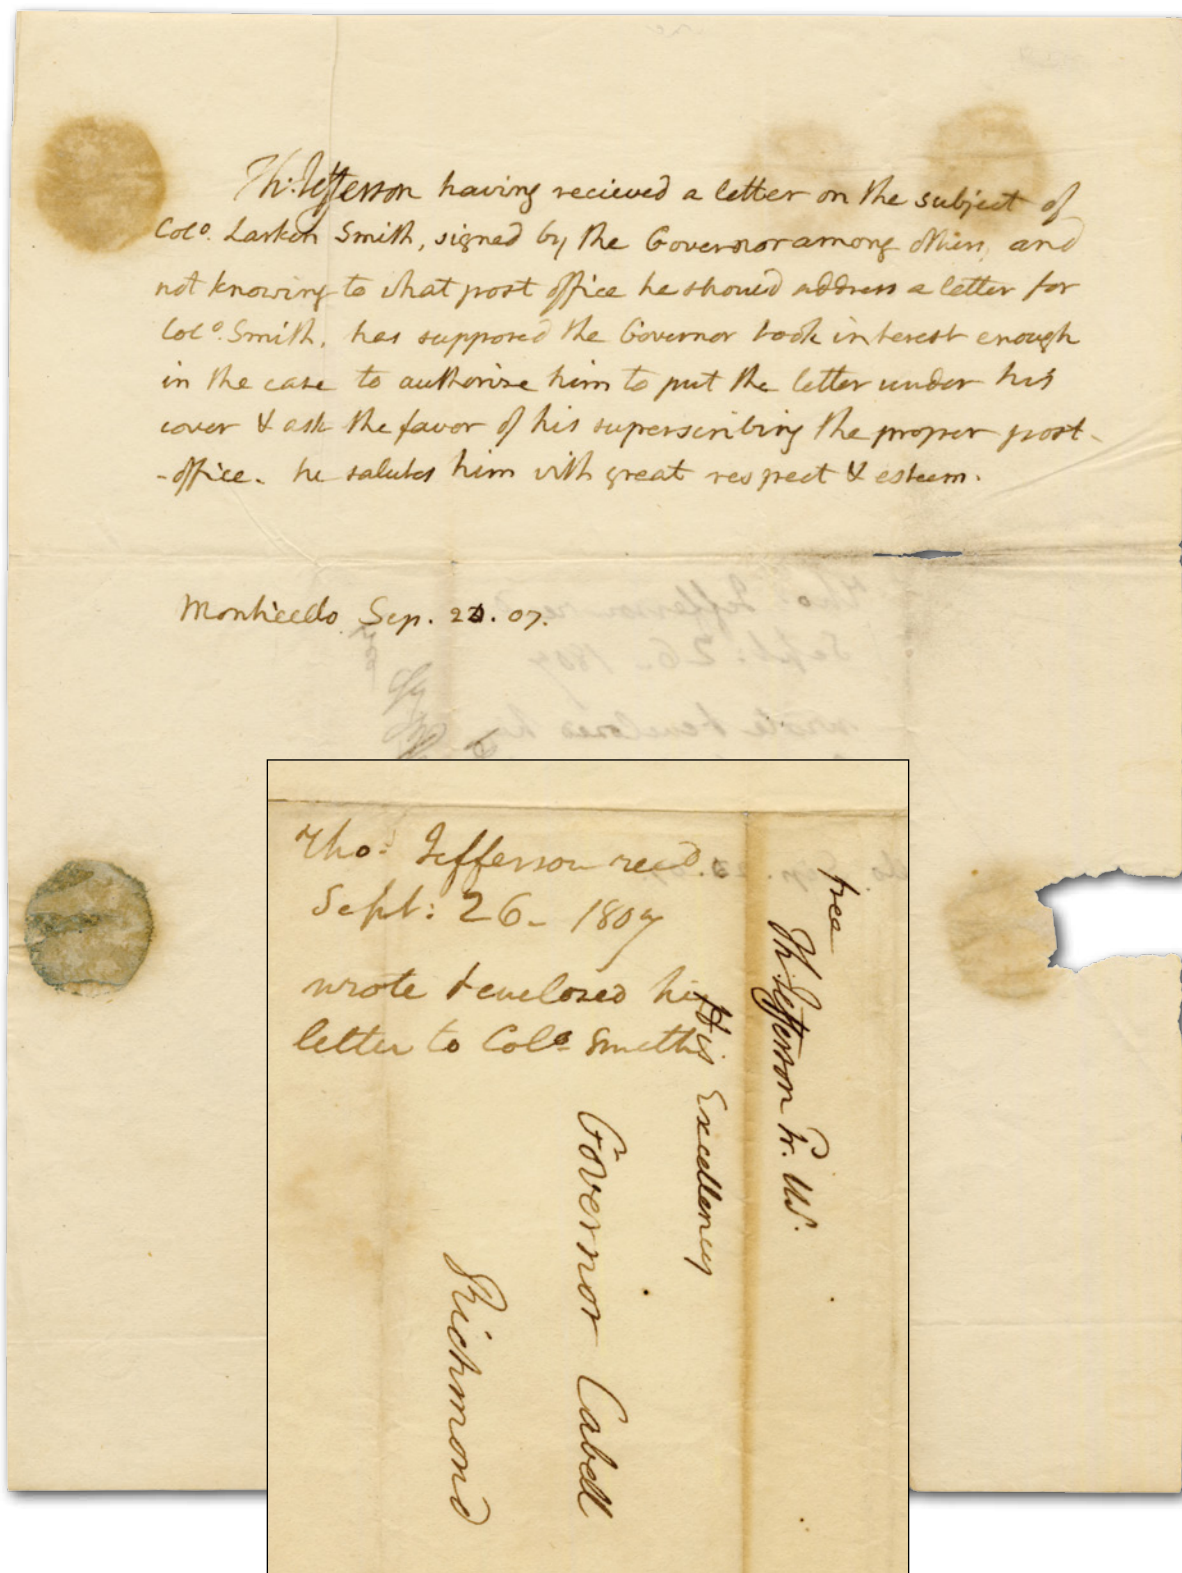 Th: Jefferson having recieved a letter on the subject of
Colo. Larkin Smith, signed by the Governor among others, and
not knowing to what post office he should address a letter for
Colo. Smith, has supposed the Governor took interest enough
in the case to authorize him to put the letter under his
cover & ask the favor of his superscribing the proper post-
-office. he salutes him with great respect & esteem.
Monticello Sep. 07.
Tho: Jefferson recd.
Sept: 26- 1807
wrote & enclosed his
letter to Colo Smith
free
Th: Jefferson Pr. US.
His Excellency
Governor Cabell
Richmond